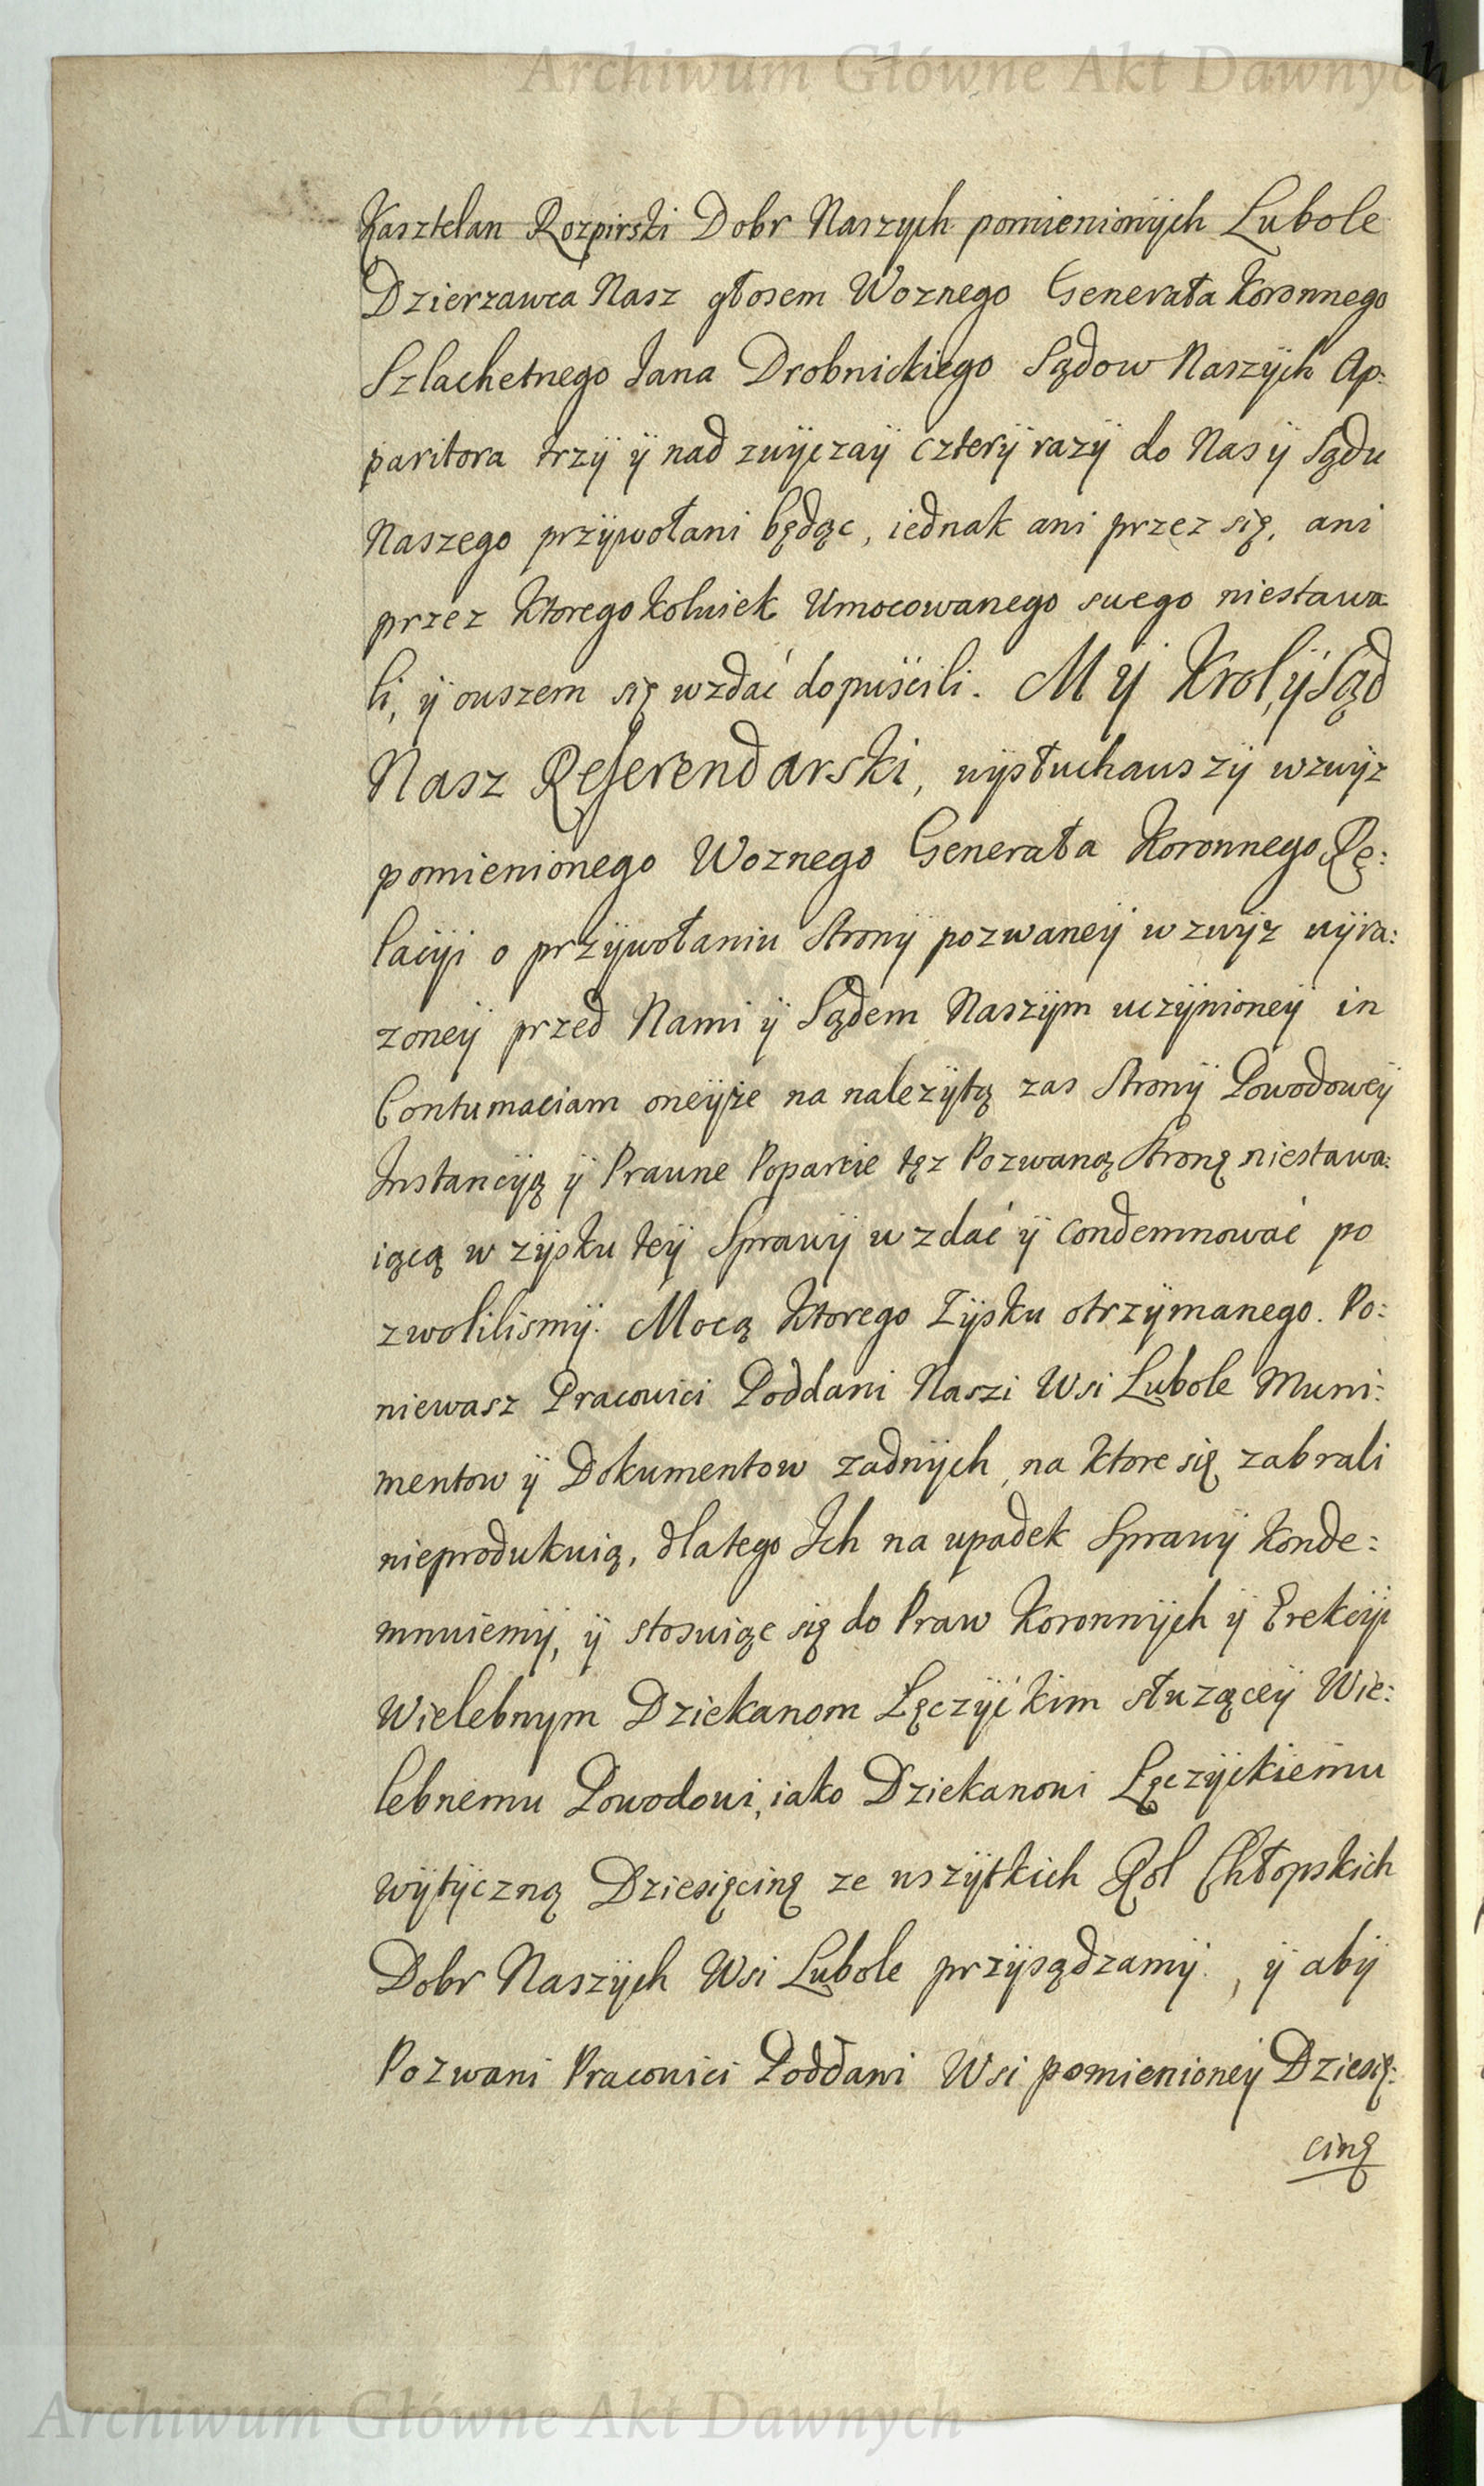 Archiwum Główne Akt Dawnych
Kasztelan Rozpirski Dobr Naszych pomienionÿch Lubole
Dzierzawca Nasz głosem Woznego Generała Koronnego
Szlachetnego Jana Drobnickiego Sądow Naszÿch Ap:
paritora trzÿ ÿ nad zwÿczaÿ czterÿ razÿ do Nas ÿ Sądu
Naszego przÿwołani będąc, iednak ani przez się, ani
przez ktoregokolwiek Umocowanego swego niestawa
li, ÿ owszem się wzdać dopuścili. MŸ Krol, ÿ Sąd
Nasz Referendarski, wÿsłuchawszÿ wzwÿz
pomienionego Woznego Generała Koronnego Re:
lacÿi o przÿwołaniu Stronÿ pozwaneÿ wzwÿz wÿra:
zoneÿ przed Nami ÿ Sądem Naszÿm uczÿnioneÿ in
Contumaciam oneÿże na nalezÿtą zas Stronÿ Powodoweÿ
Instancÿą ÿ Prawne Poparcie tęz Pozwaną Stronę niestawa:
iącą w zÿsku teÿ Sprawÿ wzdać ÿ Condemnować po
zwolilismÿ. Mocą ktorego Zÿsku otrzÿmanego. Po:
niewasz Pracowici Poddani Naszi Wsi Lubole Muni:
mentow ÿ Dokumentow zadnÿch, na ktore się zabrali
nieprodukuią, dlatego Ich na upadek Sprawÿ Konde:
mnuiemÿ, ÿ stosuiąc się do Praw Koronnÿch ÿ Erekcÿi
Wielebnym Dziekanom Łęczÿckim służąceÿ Wie:
lebnemu Powodowi, iako Dziekanowi Łęczÿckiemu
wÿtÿczną Dziesięcinę ze wszÿtkich Rol Chłopskich
Dobr Naszÿch Wsi Lubole przÿsądzamÿ, ÿ abÿ
Pozwani Pracowici Poddani Wsi pomienioneÿ Dziesię:
cinę
Archiwum Główne Akt Dawnych